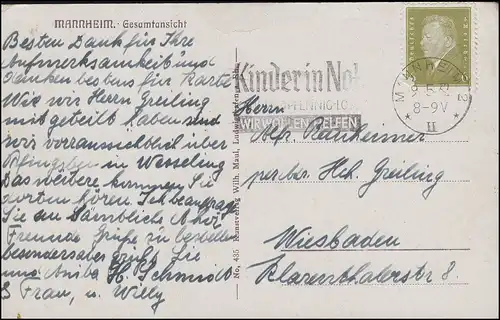 MANNHEIM. Gesamtansicht
Besten Dank für Ihre
Aufmerksamkeit und
danken bestens für Karte
Wie wir Herrn Greiling
mitgeteilt haben sind
wir voraussichtlich über
Pfingsten in Wesseling
Das weitere kommen Sie
dorten hören. Ich beauftrage
Sie an sämtliche
Freunde Grüße zu bestellen
besonders aber grüßt Sie
und Anita H. Schmidt
& Frau, u. Willy
No. 435 Kunstverlag Wilh. Maul,
Kinder in Not
WIR WOLLEN HELFEN
MANNHEIM 2
8-9V
II
6
Herrn
Alex. Rauheimer
per Adr. Hch. Greiling
Wiesbaden
Klarenthalerstr 8.